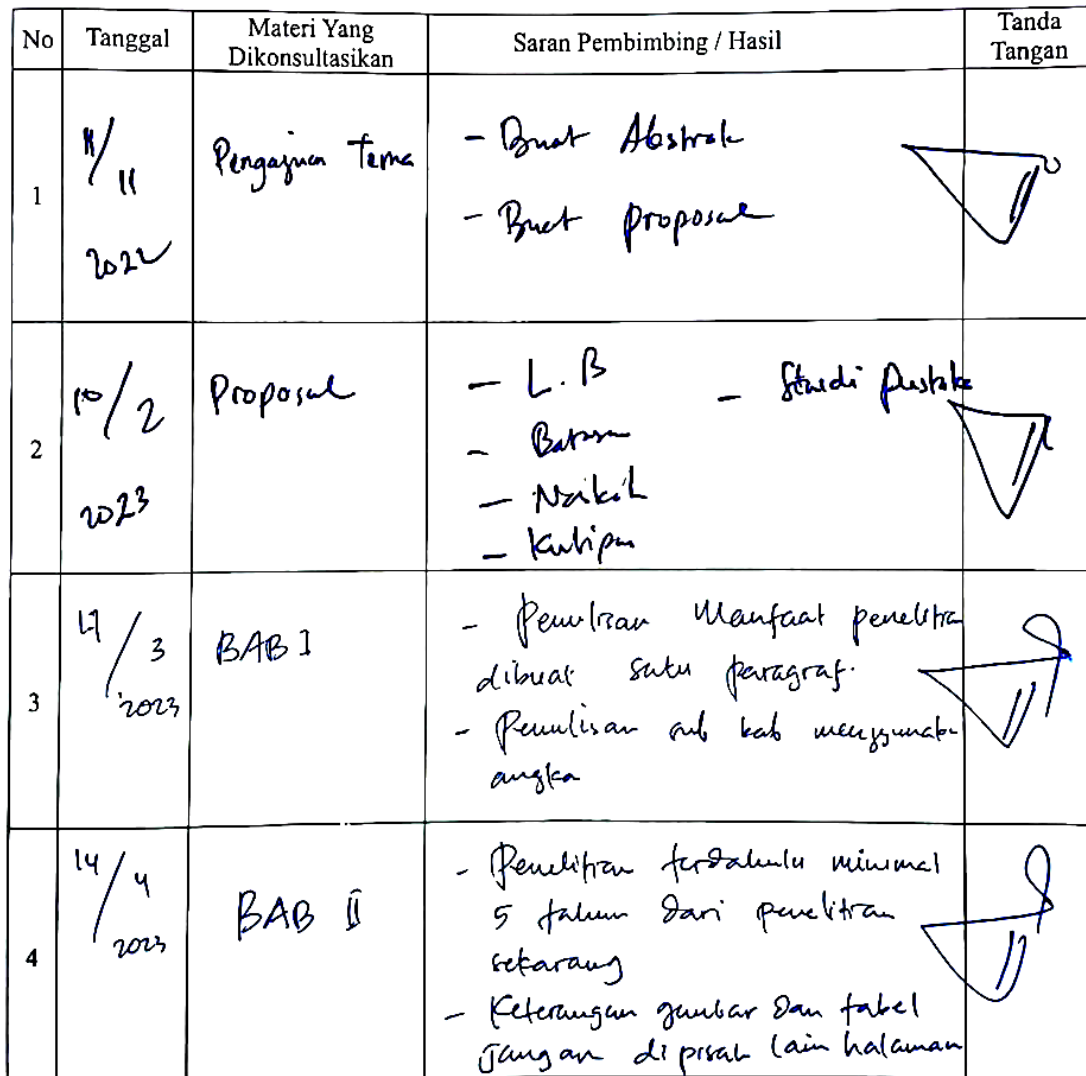 No Tanggal Materi Yang Dikonsultasikan Saran Pembimbing / Hasil Tanda Tangan
1
11/11
2022
Pengajuan Tema
- Buat Abstrak
- Buat proposal
2
10/2
2023
Proposal
- L.B
- Studi Pustaka
- Batasan
- Naikah
- Kutipan
3
17/3
2023
BAB I
- Penulisan Manfaat penelitian
dibuat satu paragraf.
- Penulisan sub bab menggunakan
angka
4
14/4
2023
BAB II
- Penelitian terdahulu minimal
5 tahun dari penelitian
sekarang
- Keterangan gambar dan tabel
jangan dipisah lain halaman